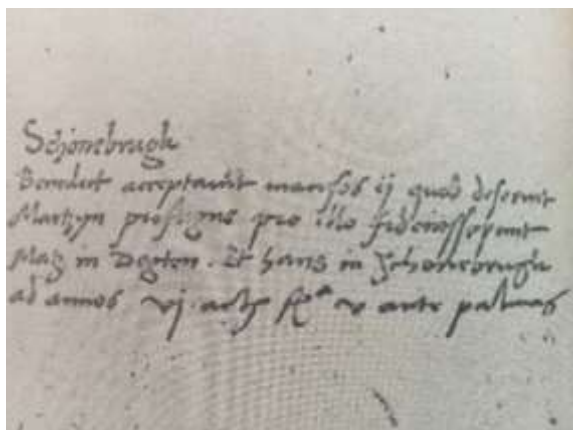 Schonebrugk
Benedict acceptavit mansos ij quos deseruit
Martzyn profugus pro illo fideiusserunt
Matz in Degten. Et Hans in Schonebrugk
ad annos vj. act fer^a v ante palmas